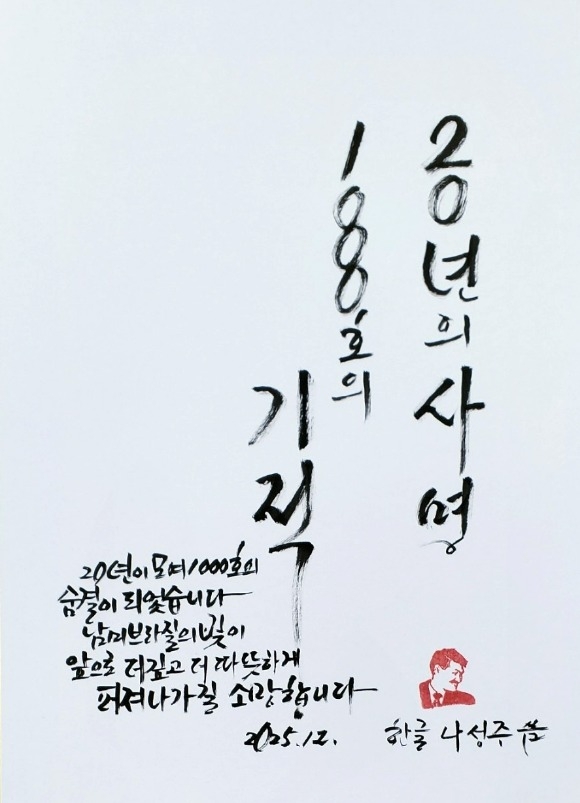 20년의 사명
1000호의
기적
20년이 모여 1000호의
숨결이 되었습니다
남미브라질의 빛이
앞으로 더 깊고 더 따뜻하게
퍼져나가길 소망합니다
2025.12.
한글 나성주 씀